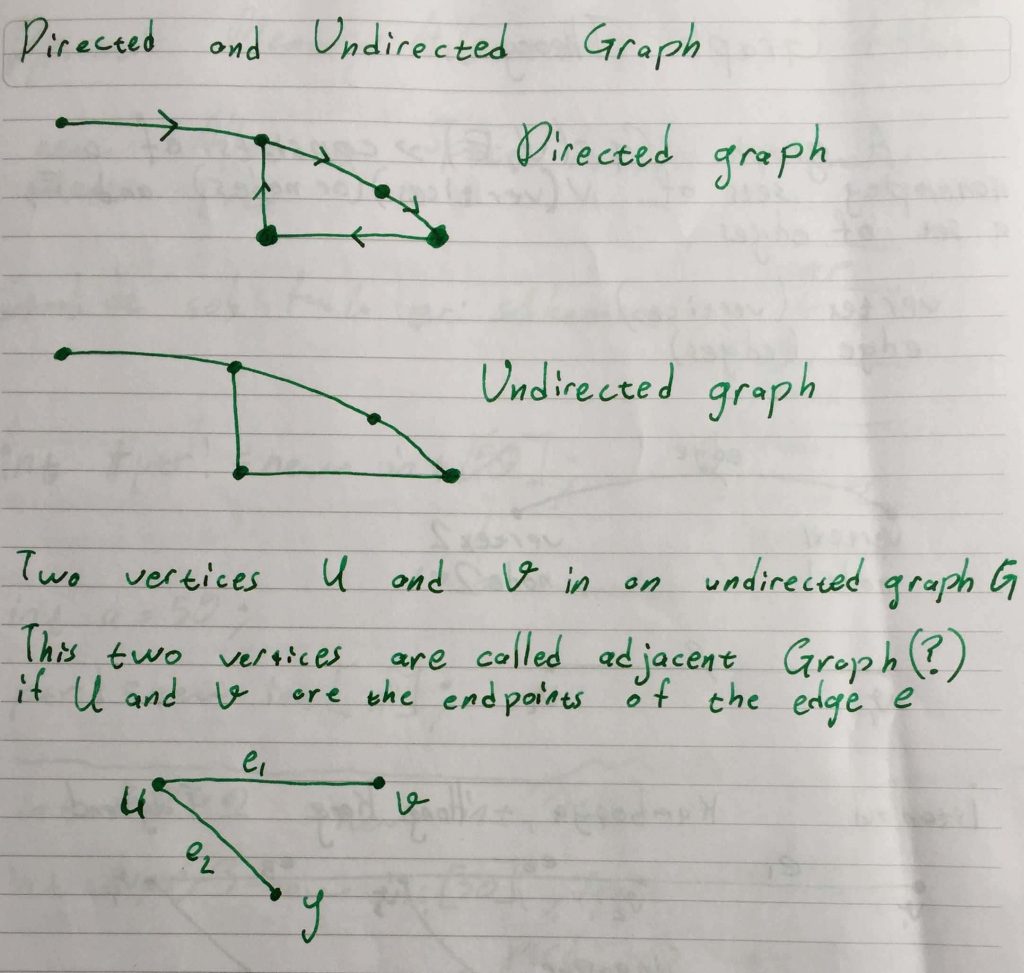 Directed and Undirected Graph
Directed graph
Undirected graph
Two vertices u and v in an undirected graph G
This two vertices are called adjacent Graph(?)
if u and v are the endpoints of the edge e
e₁
u
v
e₂
y